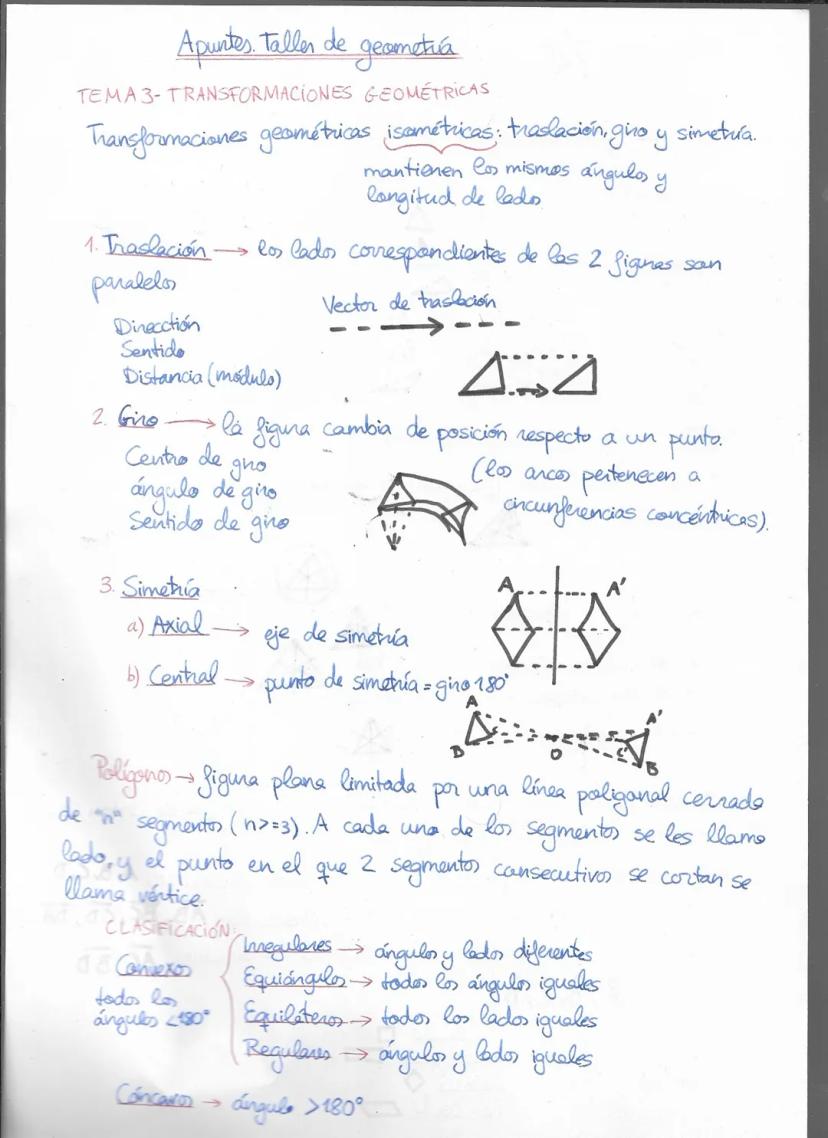 Apuntes. Taller de geometría
TEMA 3- TRANSFORMACIONES GEOMÉTRICAS
Transformaciones geométricas isométricas: traslación, giro y simetría.
mantienen los mismos ángulos y
longitud de lados
1. Traslación → los lados correspondientes de las 2 figuras son
paralelos
Vector de traslación
Dirección
Sentido
Distancia (módulo)
2. Giro → la figura cambia de posición respecto a un punto.
Centro de giro
(los arcos pertenecen a
ángulo de giro
circunferencias concéntricas).
Sentido de giro
3. Simetría
A A'
a) Axial → eje de simetría
b) Central → punto de simetría = giro 180°
A
A'
D
O
C'
B
Polígonos → figura plana limitada por una línea poligonal cerrada
de "n" segmentos (n>=3). A cada uno de los segmentos se les llama
lado, y el punto en el que 2 segmentos consecutivos se cortan se
llama vértice.
CLASIFICACIÓN:
Irregulares → ángulos y lados diferentes
Convexos
Equiángulos → todos los ángulos iguales
todos los
ángulos <180°
Equiláteros → todos los lados iguales
Regulares → ángulos y lados iguales
Cóncavos → ángulo >180°